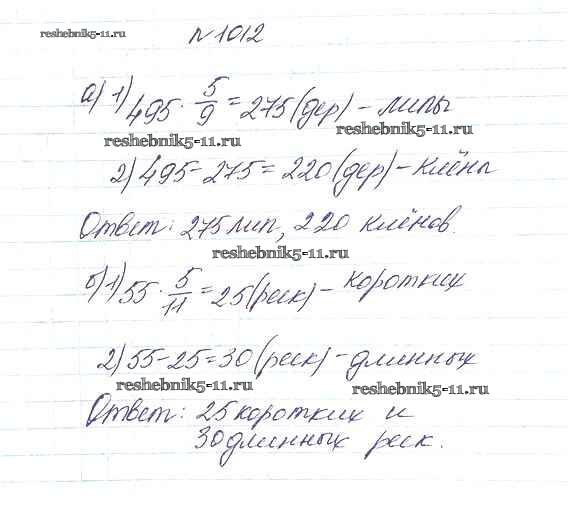 reshebnik5-11.ru
№1012
а) 1) 495 · 5/9 = 275 (дер) - липы
reshebnik5-11.ru
reshebnik5-11.ru
2) 495 - 275 = 220 (дер) - клёны
Ответ: 275 лип, 220 клёнов.
reshebnik5-11.ru
б) 1) 55 · 5/11 = 25 (рек) - коротких
2) 55 - 25 = 30 (рек) - длинных
reshebnik5-11.ru
reshebnik5-11.ru
Ответ: 25 коротких и
30 длинных рек.